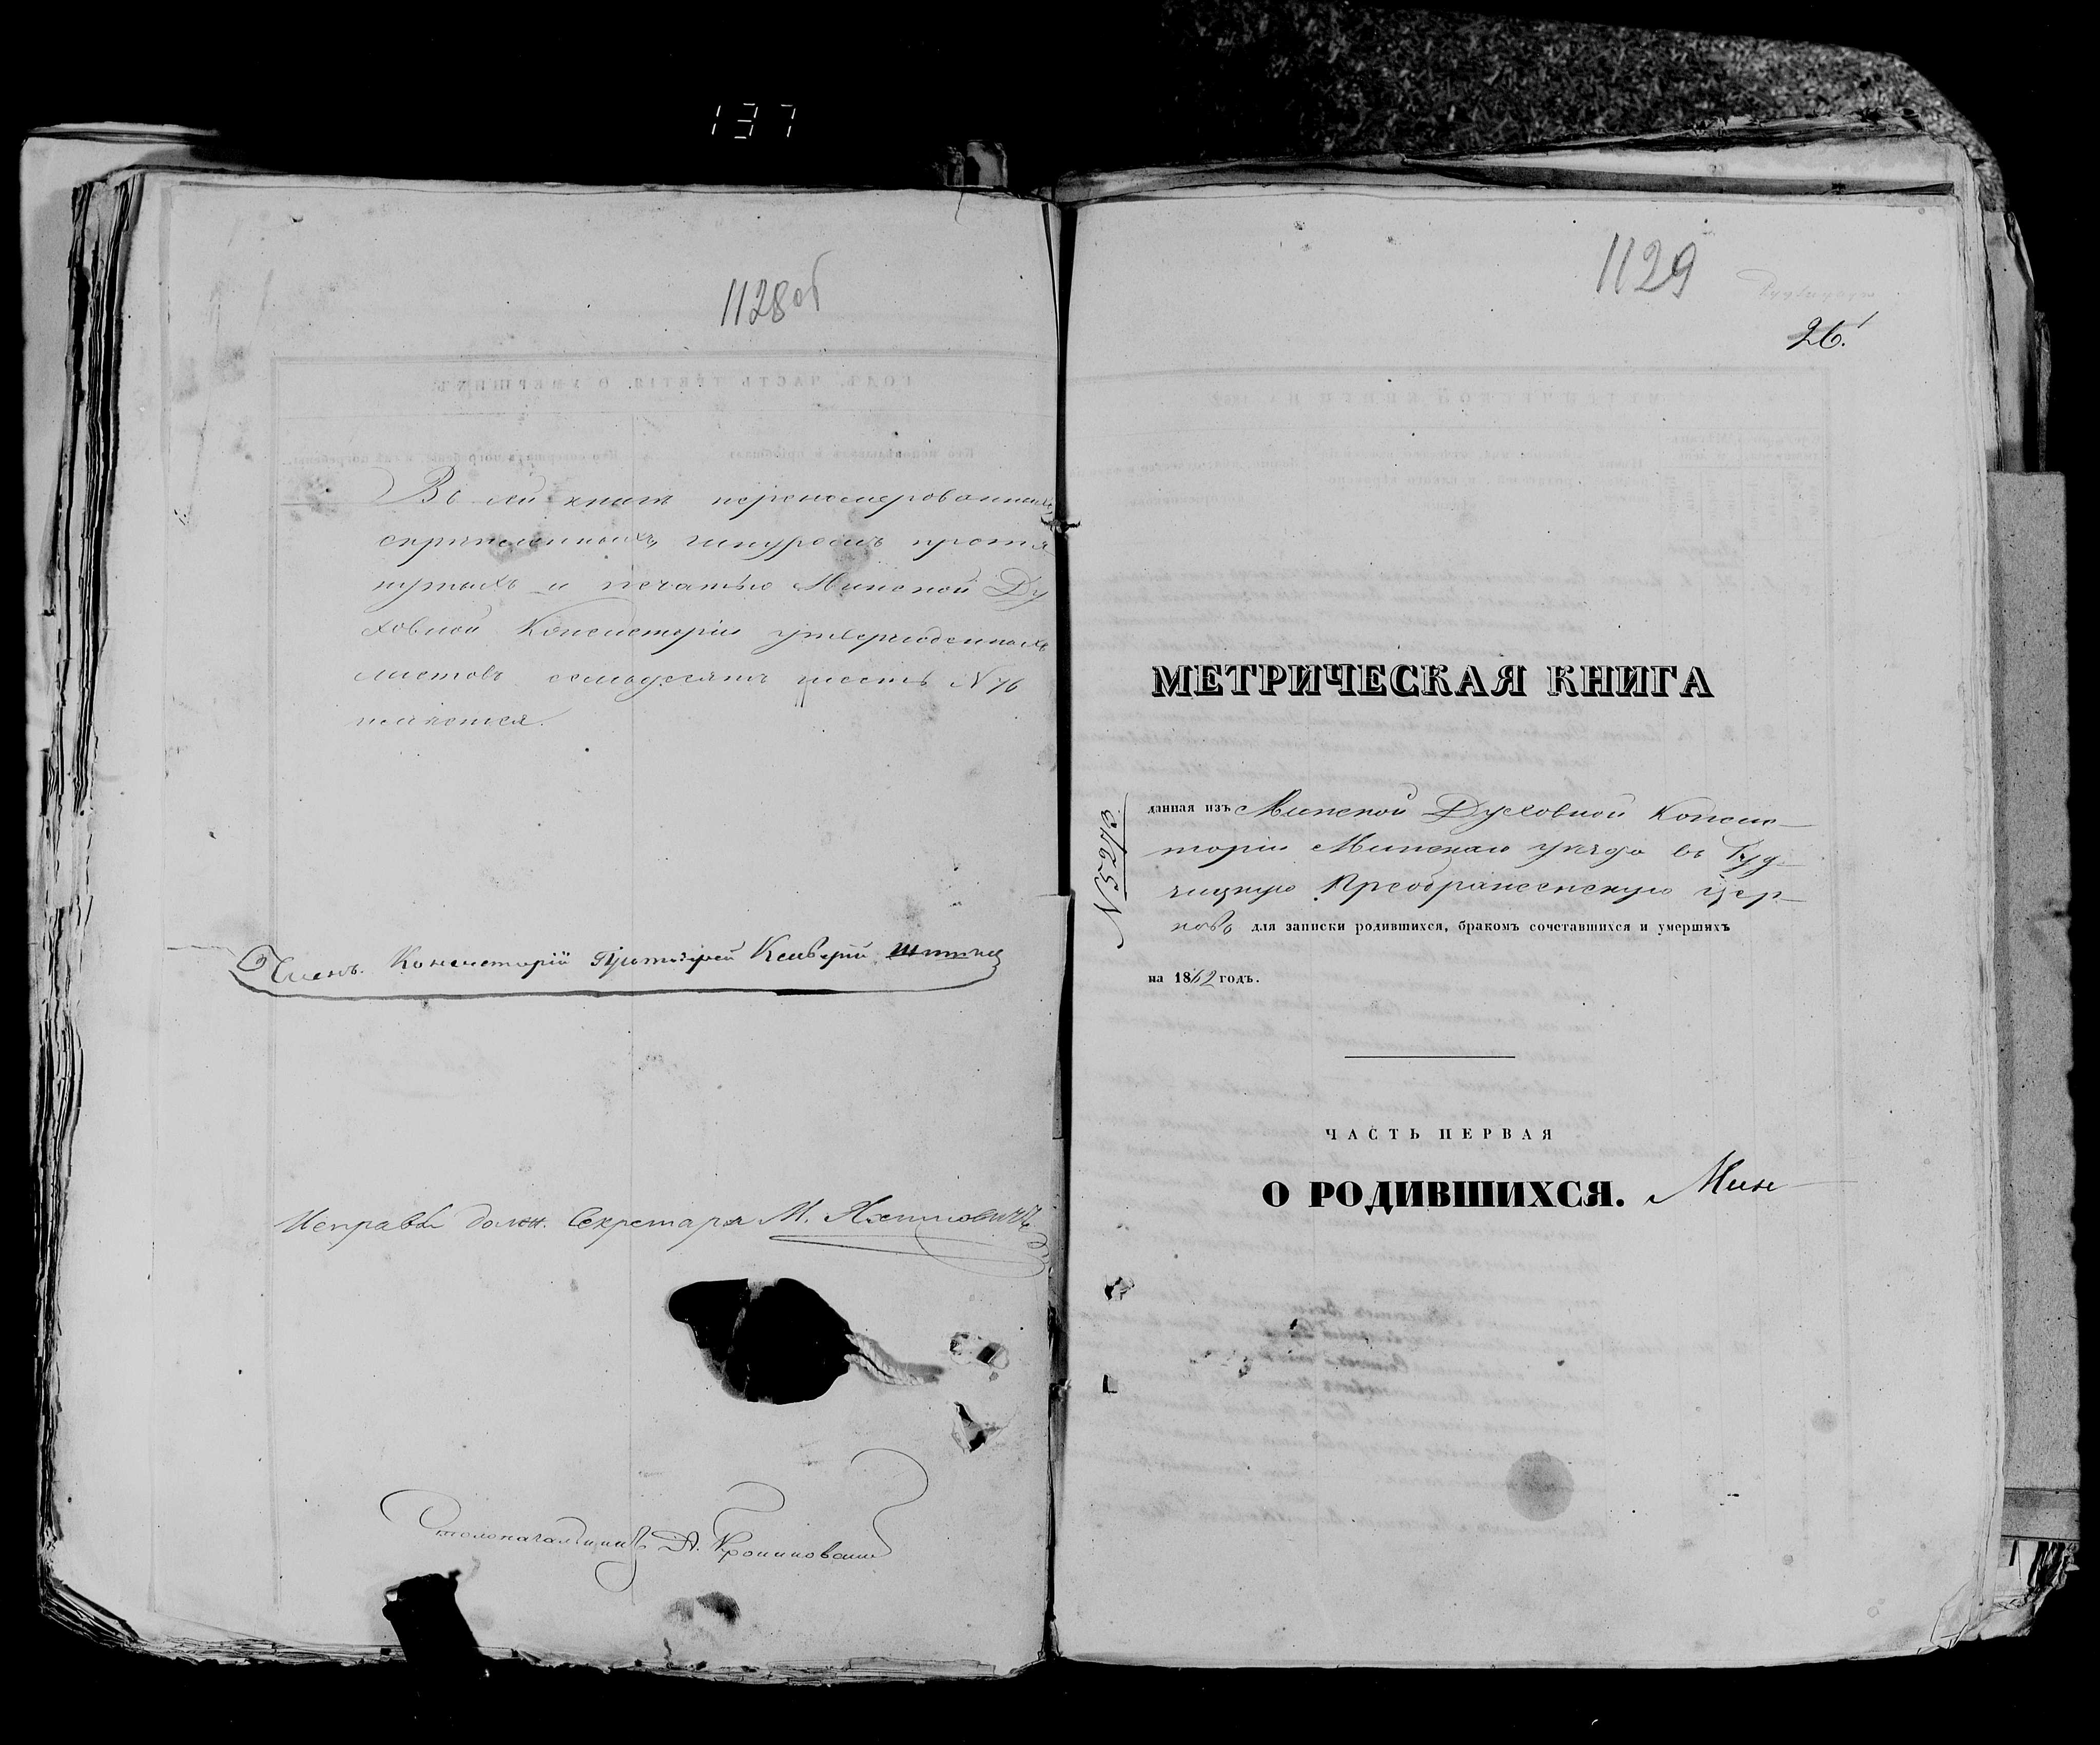 137
1128об
Въ сей книгѣ перенумерованныхъ
скрѣпленныхъ, шнуромъ протя
нутыхъ и печатью Минской Ду
ховной Консисторіи утвержденныхъ
листовъ семьдесятъ шесть N 76
Членъ Консисторіи Протоіерей
Исправл. должн. Секретаря М.
Столоначальникъ А.
1129
26.
МЕТРИЧЕСКАЯ КНИГА
N 5273
данная изъ Минской Духовной Консис-
торіи Минскаго уѣзда въ
Преображенскую Цер-
ковь для записки родившихся, бракомъ сочетавшихся и умершихъ
на 1862 годъ.
ЧАСТЬ ПЕРВАЯ
О РОДИВШИХСЯ. Мин